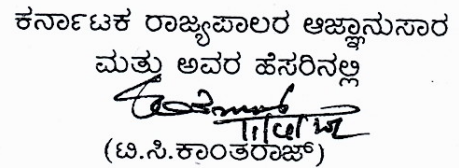 ಕರ್ನಾಟಕ ರಾಜ್ಯಪಾಲರ ಆಜ್ಞಾನುಸಾರ
ಮತ್ತು ಅವರ ಹೆಸರಿನಲ್ಲಿ
(ಟಿ.ಸಿ.ಕಾಂತರಾಜ್)